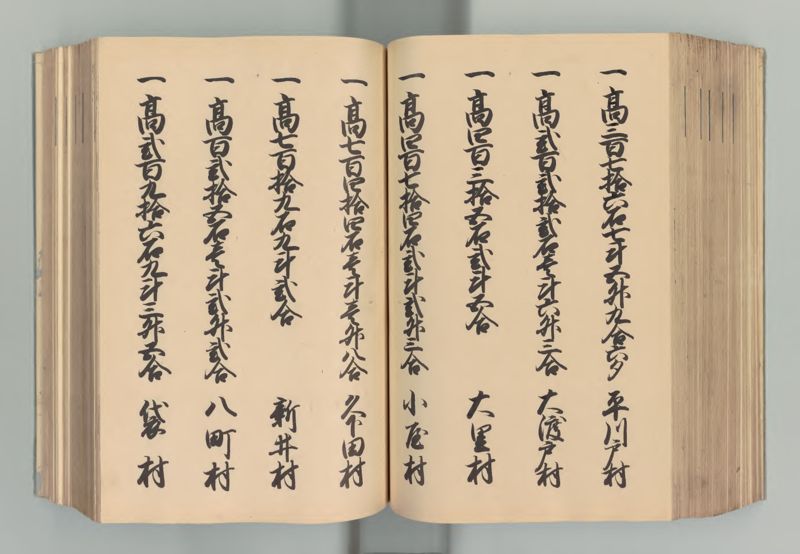 一 高三百七拾六石七斗五升九合六夕 平川戸村
一 高弐百弐拾弐石壱斗六升三合 大渡戸村
一 高四百三拾五石弐斗五合 大里村
一 高四百七拾四石弐斗弐升三合 小屋村
一 高七百四拾四石壱斗壱升八合 久下田村
一 高七百拾九石九斗弐合 新井村
一 高百弐拾五石壱斗弐升弐合 八町村
一 高弐百九拾六石九斗三升五合 袋村